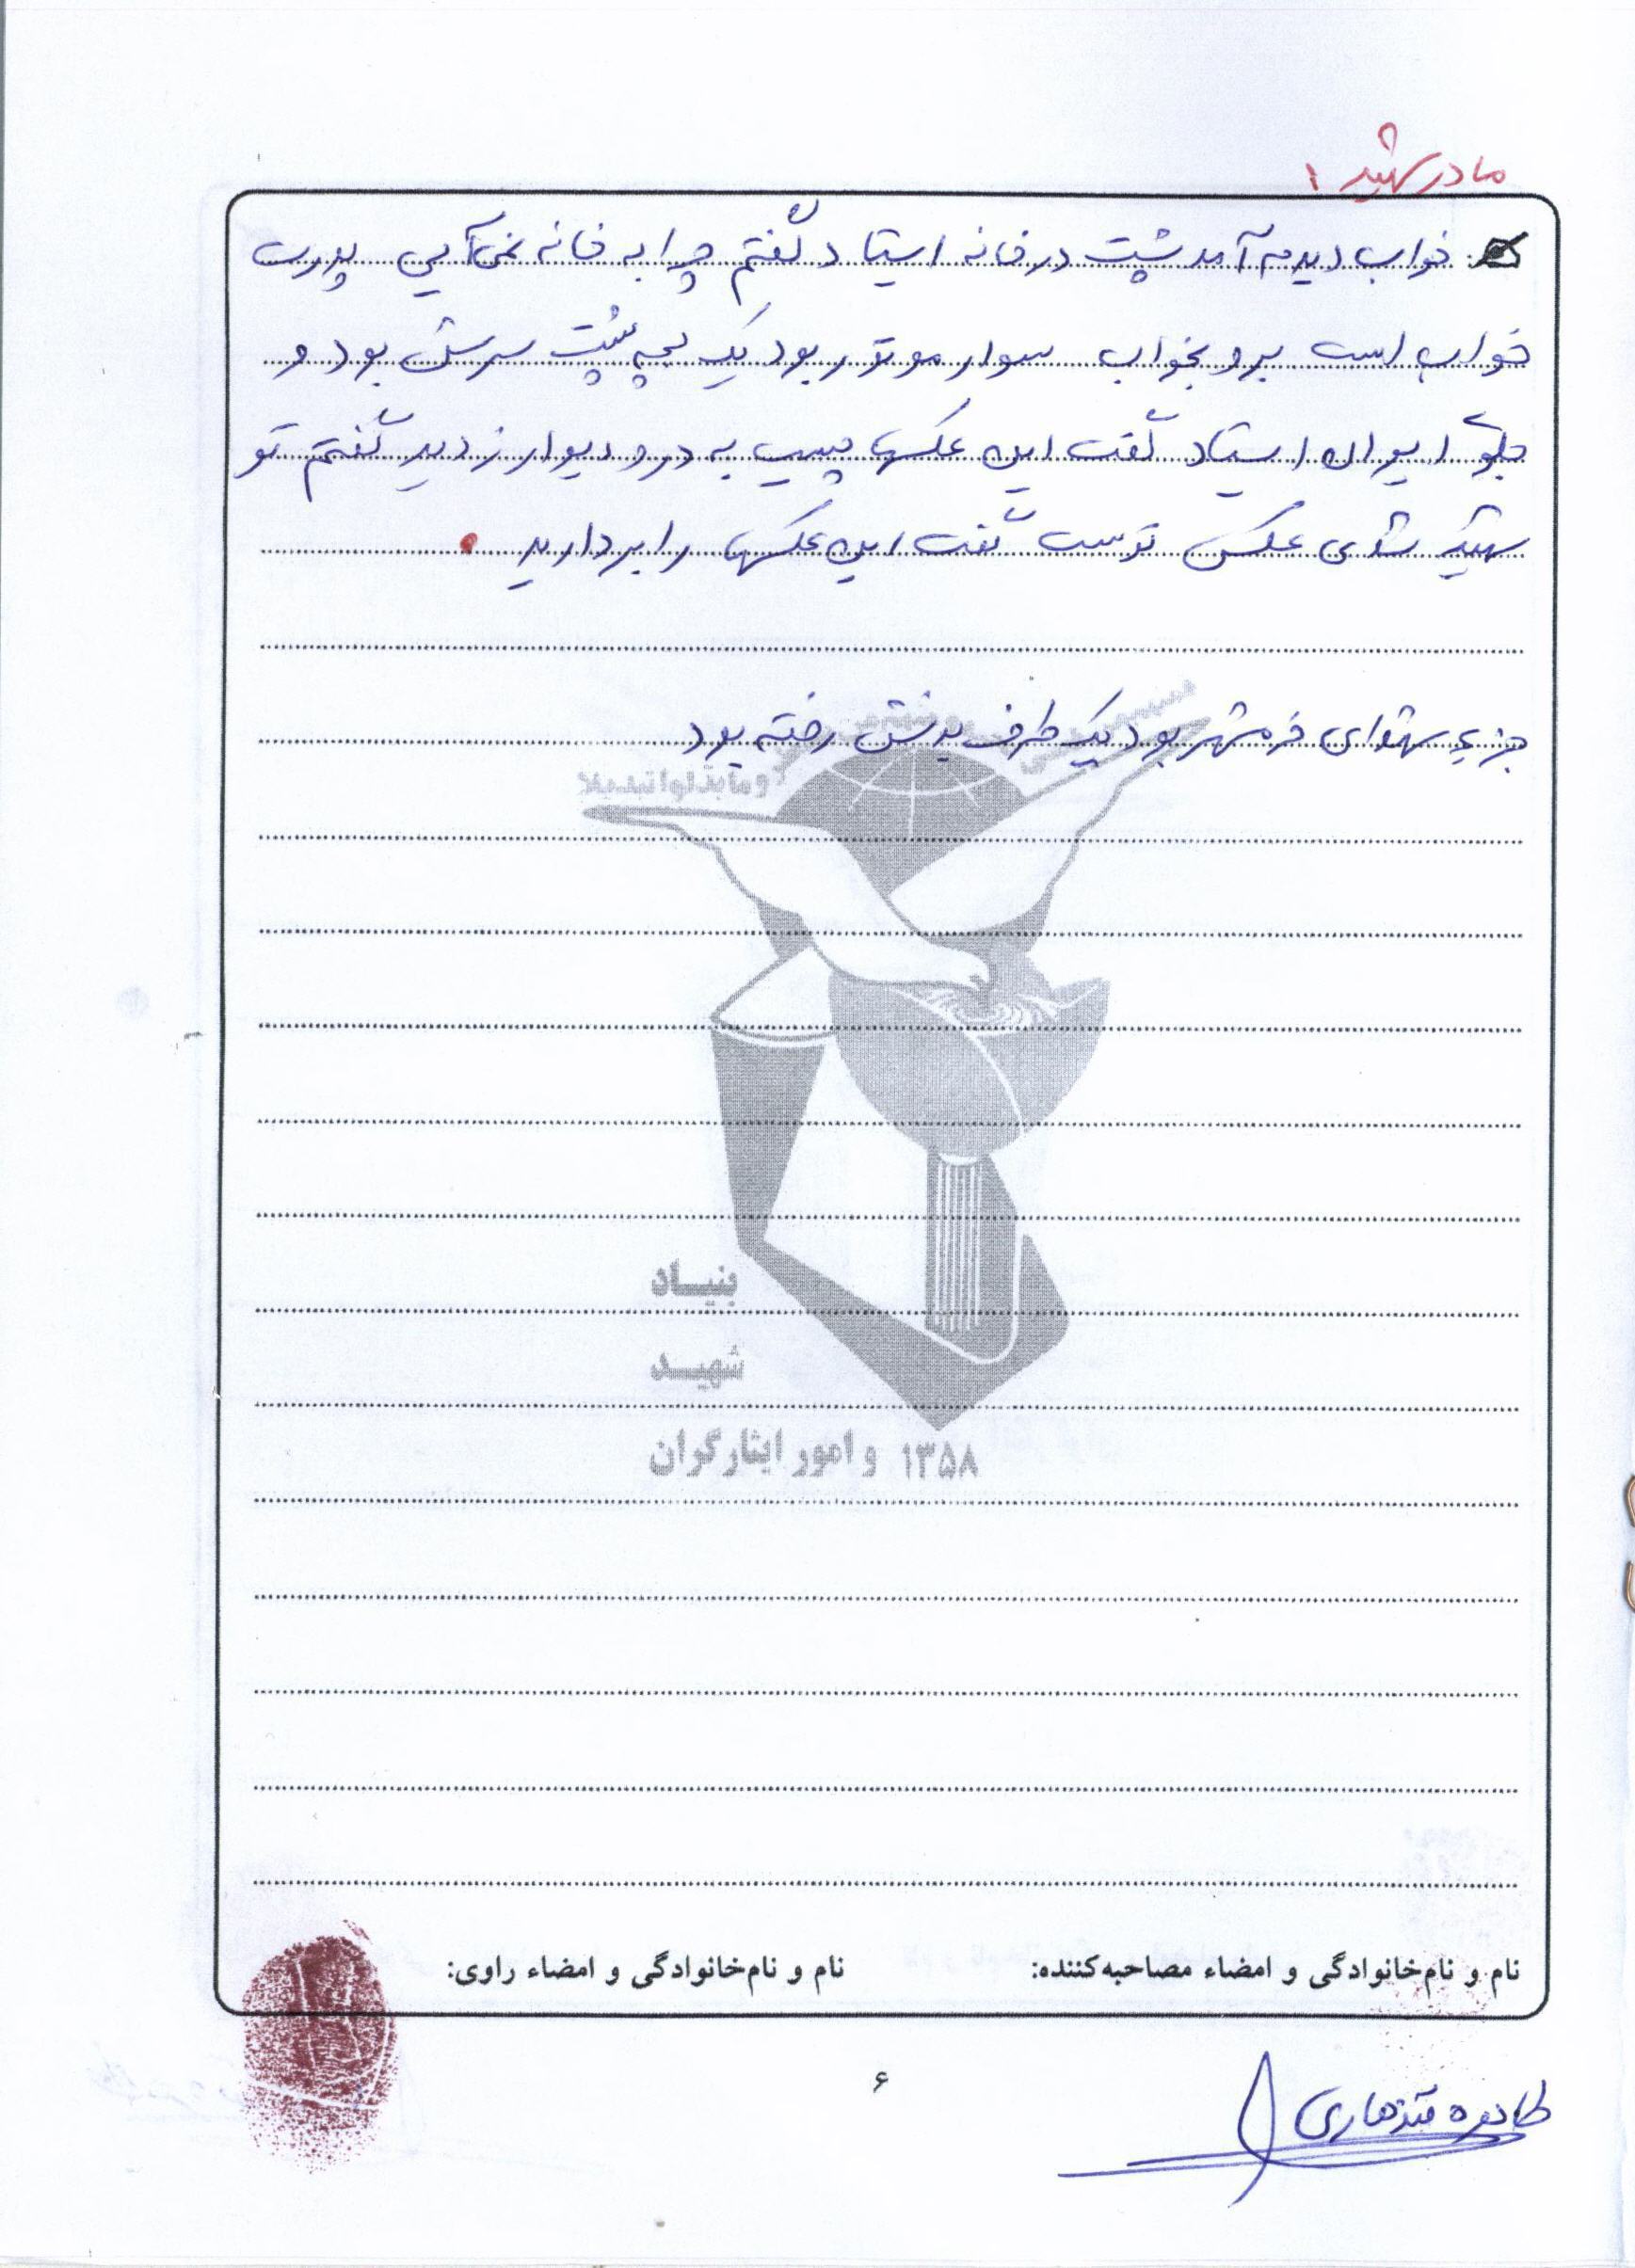 مادر شهید ۱
خواب دیدم آمد پشت در خانه ایستاد گفتم چرا به خانه نمی‌آیی پدرت
خواب است برو بخواب سوار موتور بود یک بچه پشت سرش بود و
جلو ایوان ایستاد گفت این عکسها چیست به در و دیوار زدید گفتم تو
شهید شدی عکس توست گفت این عکسها را بردارید
جزء شهدای خرمشهر بود یک طرف بدنش رفته بود
و ما بدلوا تبدیلا
بنیاد
شهید
و امور ایثارگران ۱۳۵۸
نام و نام‌خانوادگی و امضاء مصاحبه‌کننده: نام و نام‌خانوادگی و امضاء راوی:
۶
طاهره قندهاری